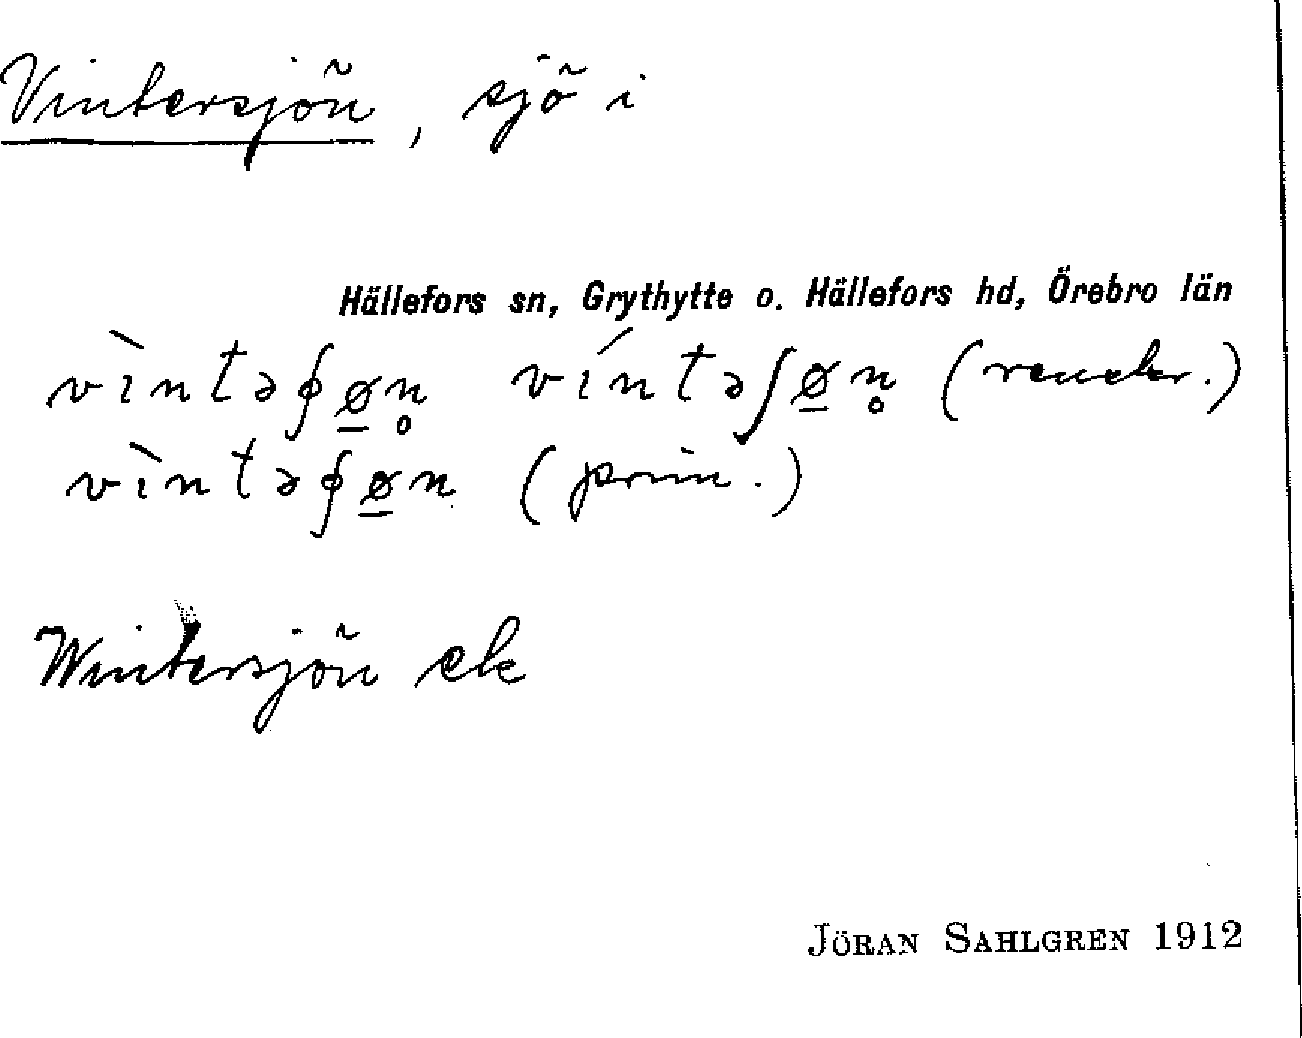 Vintersjön, sjö i
Hällefors sn, Grythytte o. Hällefors hd, Örebro län
vìntə∮ø̲n̥ víntəʃø̲n̥ (
vìntə∮ø̲n (prim.)
Wintersjön ek
JÖRAN SAHLGREN 1912